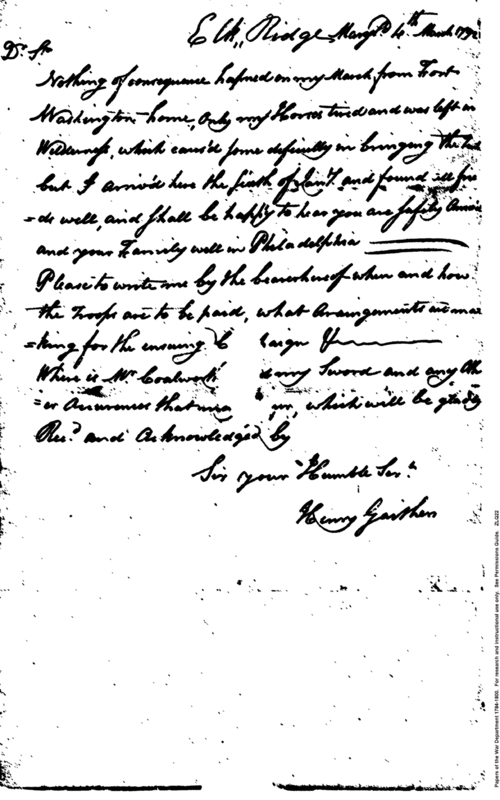 Elk Ridge Maryld 4th March 1792
Dr. Sr
Nothing of consequence hapned on my March from Fort
Washington home, Only my Horses tired and was left in
Wilderness, which caus'd some deficulty in bringing the
but I arriv'd here the sixth of Jany. and found all frie
=ds well, and shall be happy to hear you are safely Arriv
and your Family well in Philadelphia
Please to write me by the bearer hereof when and how
the Troops are to be paid, what Arrangements are ma
=king for the ensuing C aign &
Where is Mr. my Sword and any Oth
=er Occurences that ma ur, which will be gladly
Recd. and Acknowledged by
Sir your Humble Sert.
Henry Gaither
Papers of the War Department 1784-1800. For research and instructional use only. See Permissions Guide. ZLG22